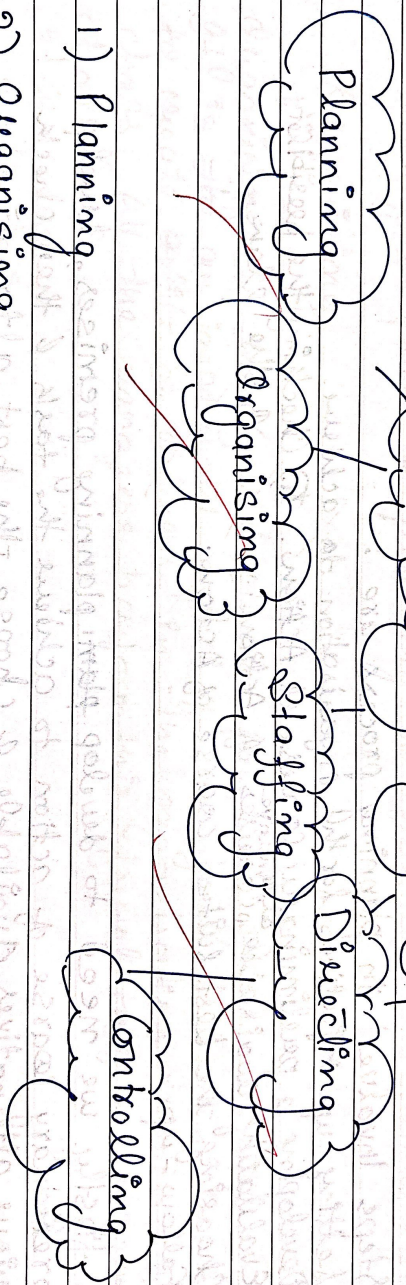 Planning
Organising
Staffing
Directing
Controlling
1) Planning
2) Organising